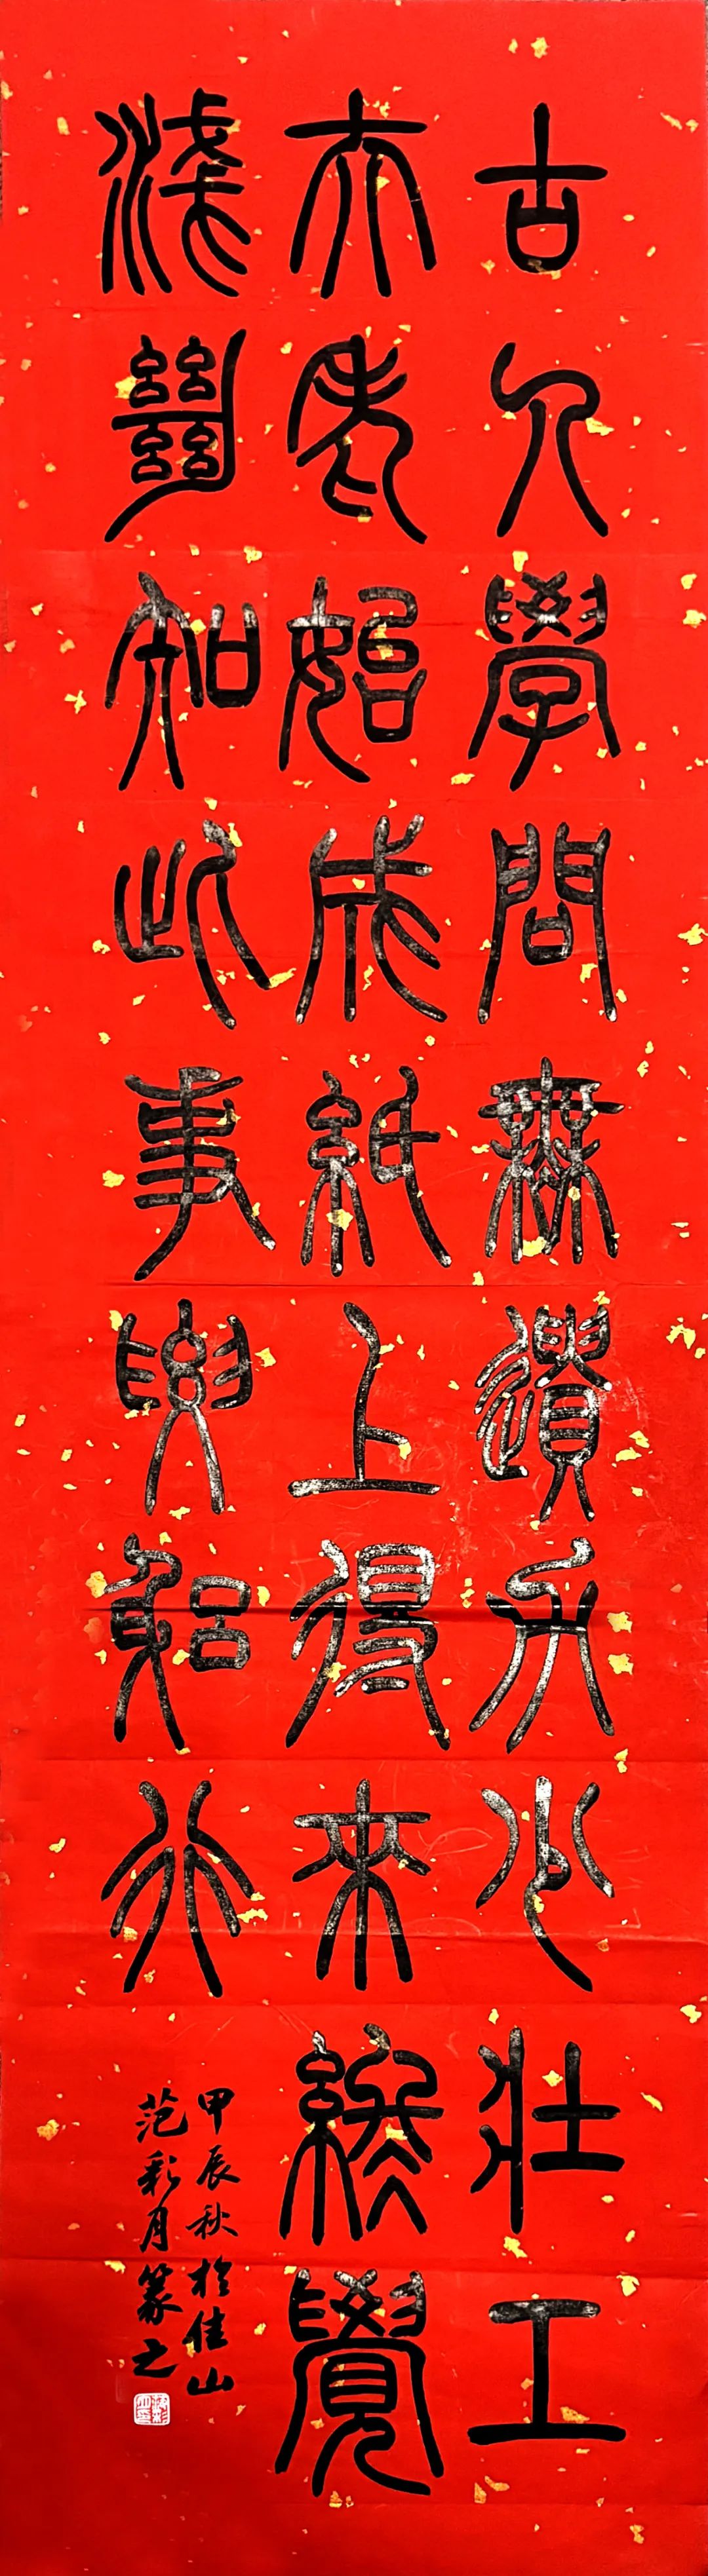 古人學問無遺力少壯工
夫老始成紙上得來終覺
淺絕知此事要躬行
甲辰秋於佳山
范彩月篆之